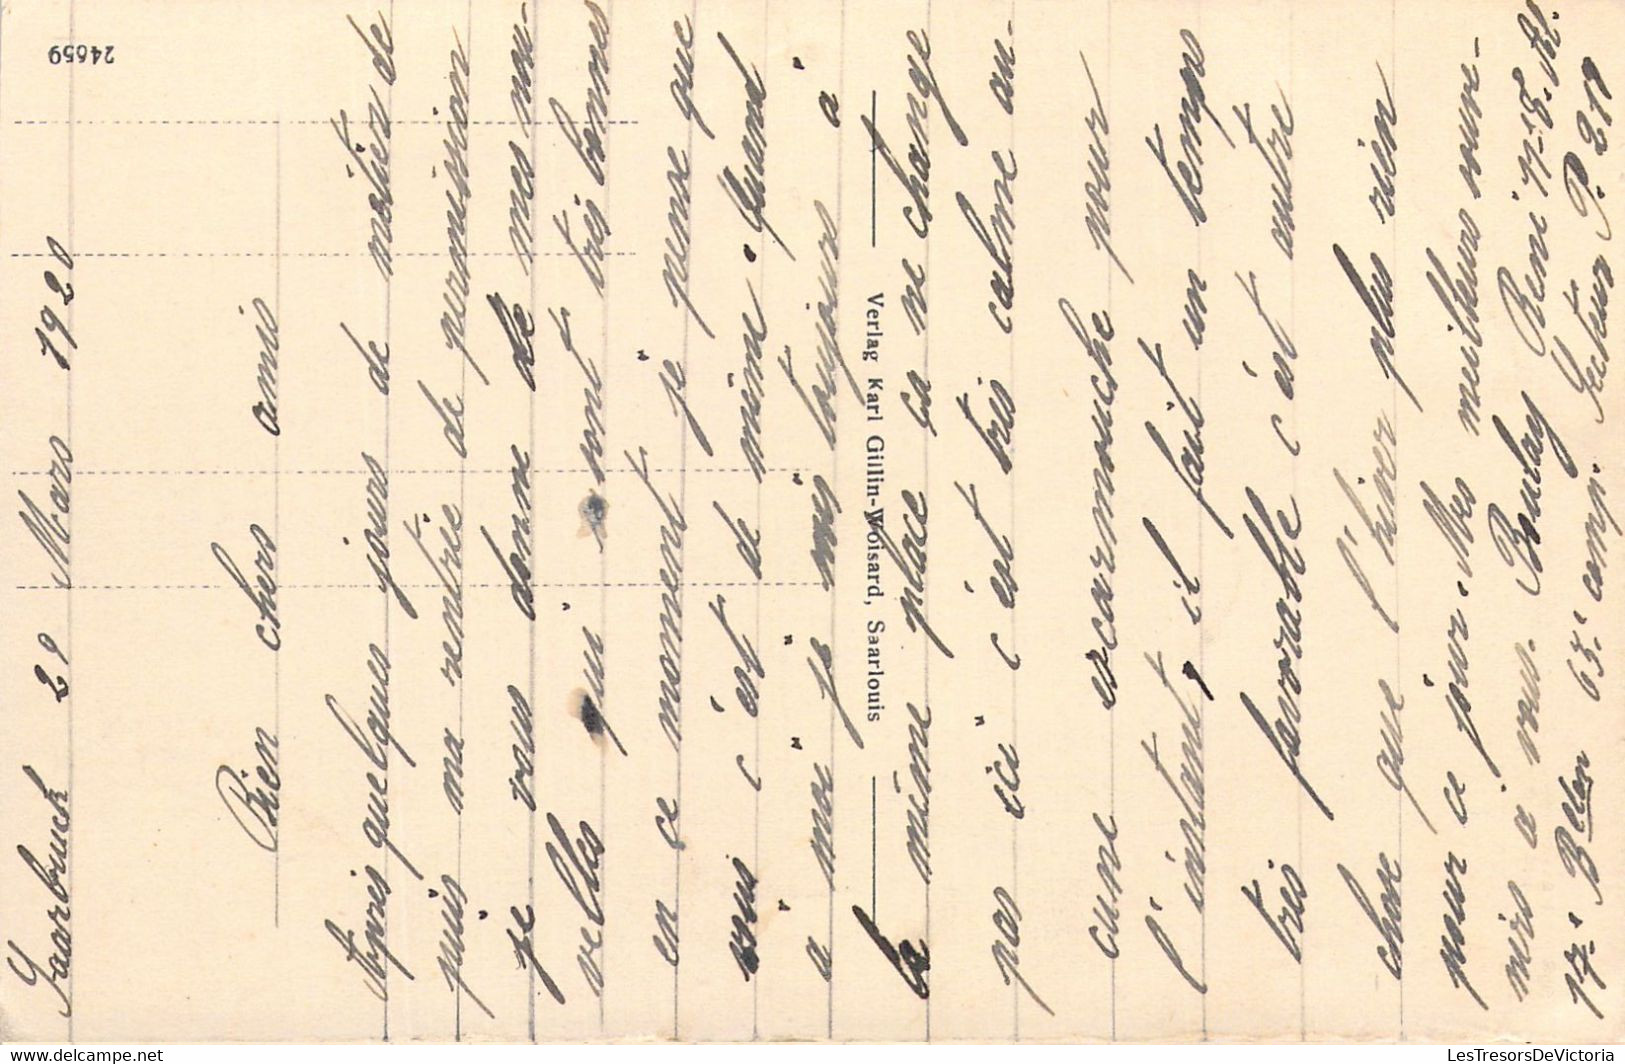 Saarbruck 28 Mars 1920
Bien chers amis
Après quelques jours de métier de
puis ma rentrée de permission
je vous donne de mes nou-
velles qui sont très bonnes
en ce moment je pense que
vous c'est de même. Quand
a moi je suis toujours à
la même place ça ne change
pas ici c'est très calme au-
cune escarmouche pour
l'instant, il fait un temps
très favorable c'est autre
chose que l'hiver plus rien
pour ce jour. Mes meilleurs souve-
nirs a vous. Boulay René 17-8.
17e Bllon 65e comp. Secteur P. 211
Verlag Karl Gillin-Woisard, Saarlouis
24659
www.delcampe.net
LesTresorsDeVictoria